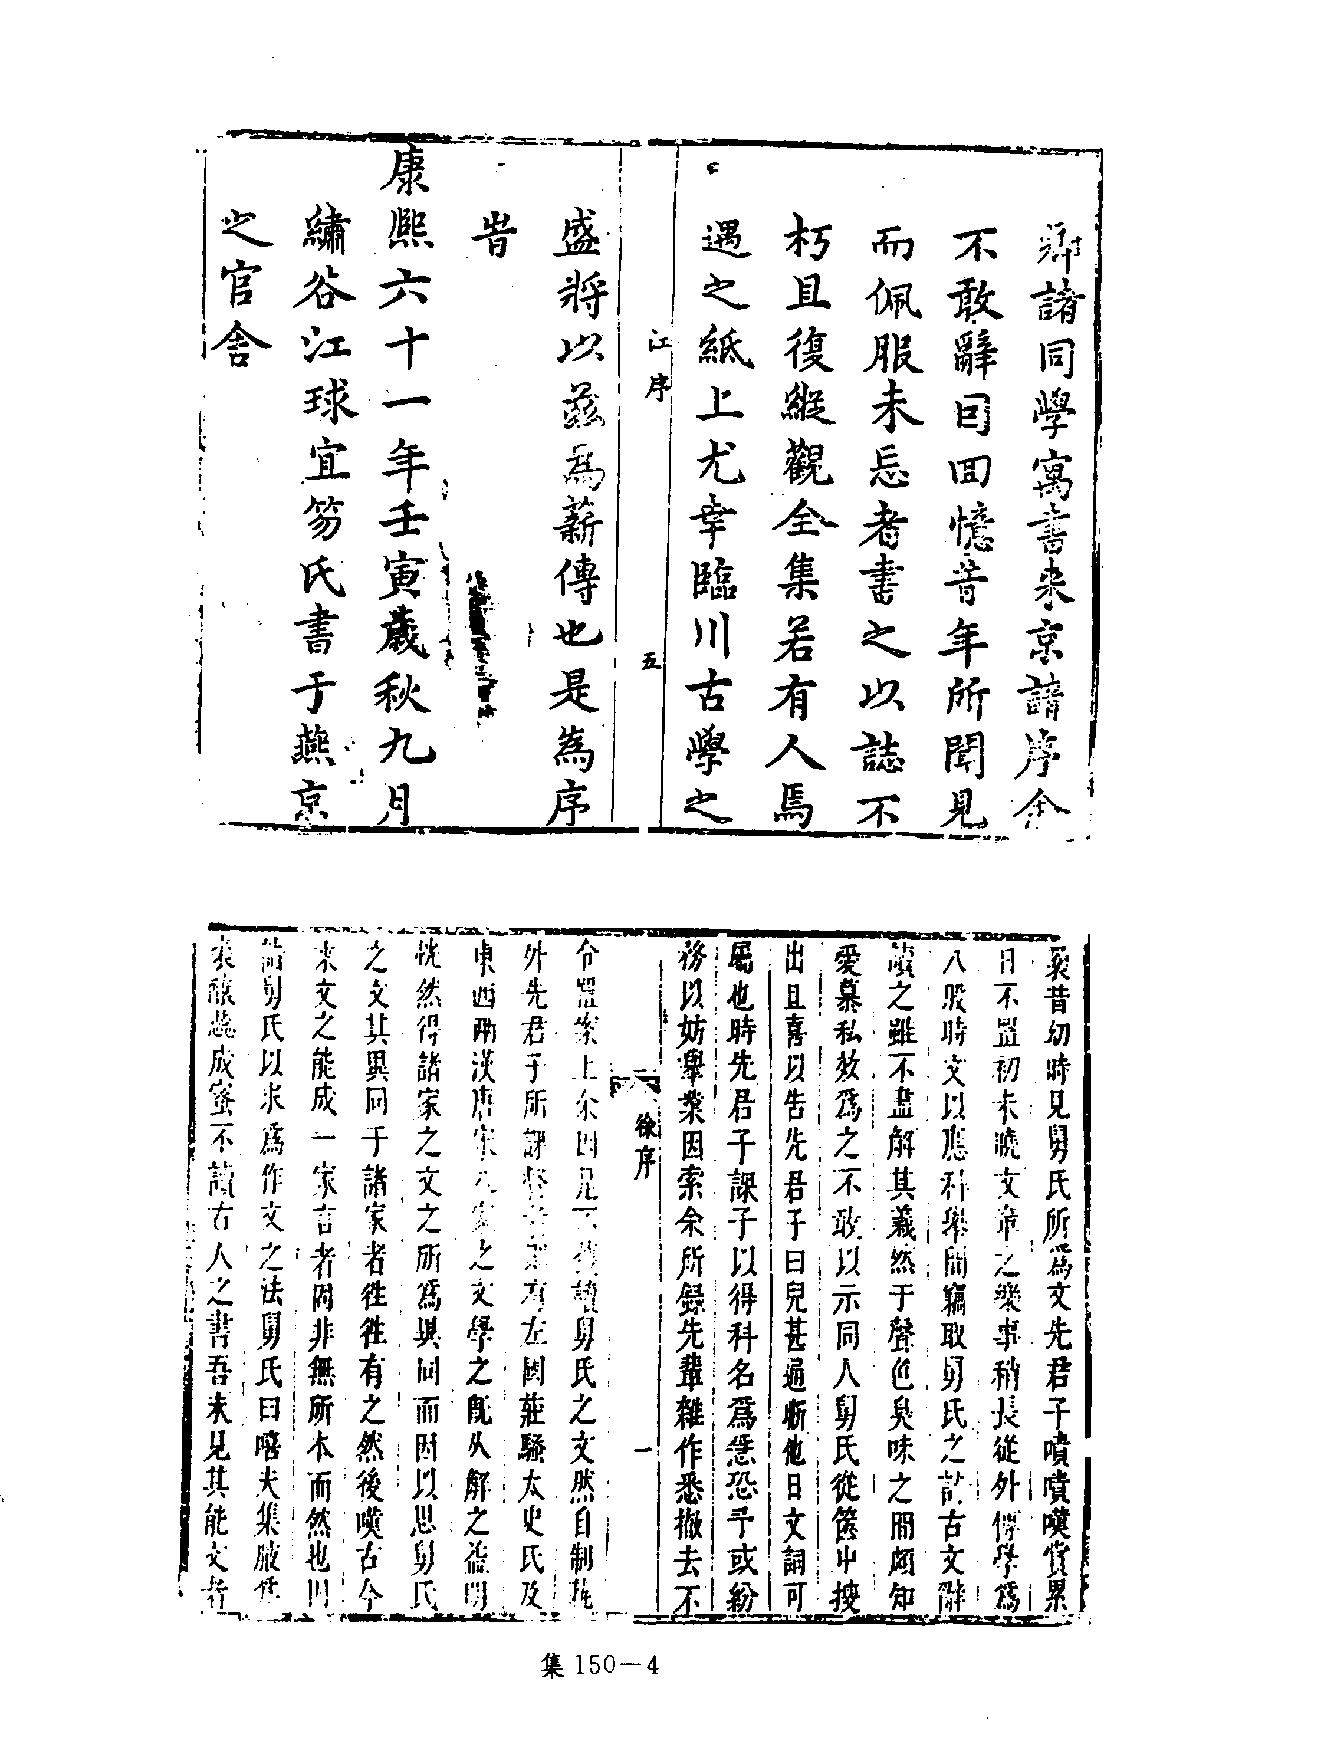 鄉諸同學寓書來京請序余
不敢辭因回憶昔年所聞見
而佩服未忘者書之以誌不
朽且復縱觀全集若有人焉
遇之紙上尤幸臨川古學之
江序
五
盛將以茲為薪傳也是為序
旹
康熙六十一年壬寅歲秋九月
繡谷江球宜笏氏書于燕京
之官舍
曩昔幼時見舅氏所為文先君子嘖嘖嘆賞累
日不置初未曉文章之樂事稍長從外傅學為
八股時文以應科舉間竊取舅氏之詩古文辭
讀之雖不盡解其義然于聲色臭味之間頗知
愛慕私效為之不敢以示同人舅氏從篋中搜
出且喜以告先君子曰兒甚通晰他日文詞可
屬也時先君子課子以得科名為念恐予或紛
務以妨舉業因索余所錄先輩雜作悉撤去不
徐序
一
令置案上余由是不復讀舅氏之文然自制
外先君子所課左國莊騷太史氏及
東西兩漢唐宋之文學之既久解之益明
恍然得諸家之文之所為異同而因以思舅氏
之文其異同于諸家者往往有之然後嘆古今
來文之能成一家言者固非無所本而然也
舅氏以求為作文之法舅氏曰嘻夫集腋
裘釀蕊成蜜不讀古人之書吾未見其能文者
集 150—4